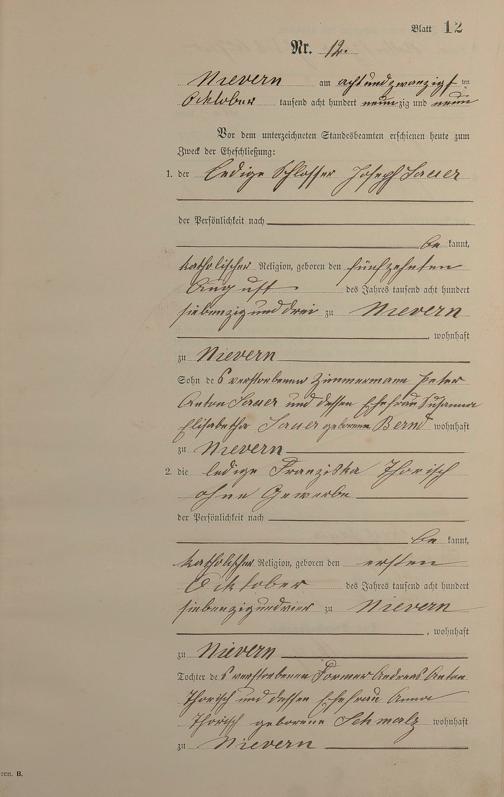 Blatt 12
Nr. 12.
Nievern am achtundzwanzigsten
Oktober tausend acht hundert neunzig und neun
Vor dem unterzeichneten Standesbeamten erschienen heute zum
Zweck der Eheschließung:
1. der ledige Schlosser Joseph Sauer
der Persönlichkeit nach
be kannt,
katholischer Religion, geboren den fünfzehnten
August des Jahres tausend acht hundert
siebenzig und drei zu Nievern
, wohnhaft
zu Nievern
Sohn des verstorbenen Zimmermann Peter
Anton Sauer und dessen Ehefrau Susanna
Elisabetha Sauer geborene Bernd wohnhaft
zu Nievern
2. die ledige Franziska Thorisch
ohne Gewerbe
der Persönlichkeit nach
be kannt,
katholischer Religion, geboren den ersten
Oktober des Jahres tausend acht hundert
siebenzig und vier zu Nievern
, wohnhaft
zu Nievern
Tochter des verstorbenen Former Andreas Anton
Thorisch und dessen Ehefrau Anna
Thorisch geborene Schmalz wohnhaft
zu Nievern
B.